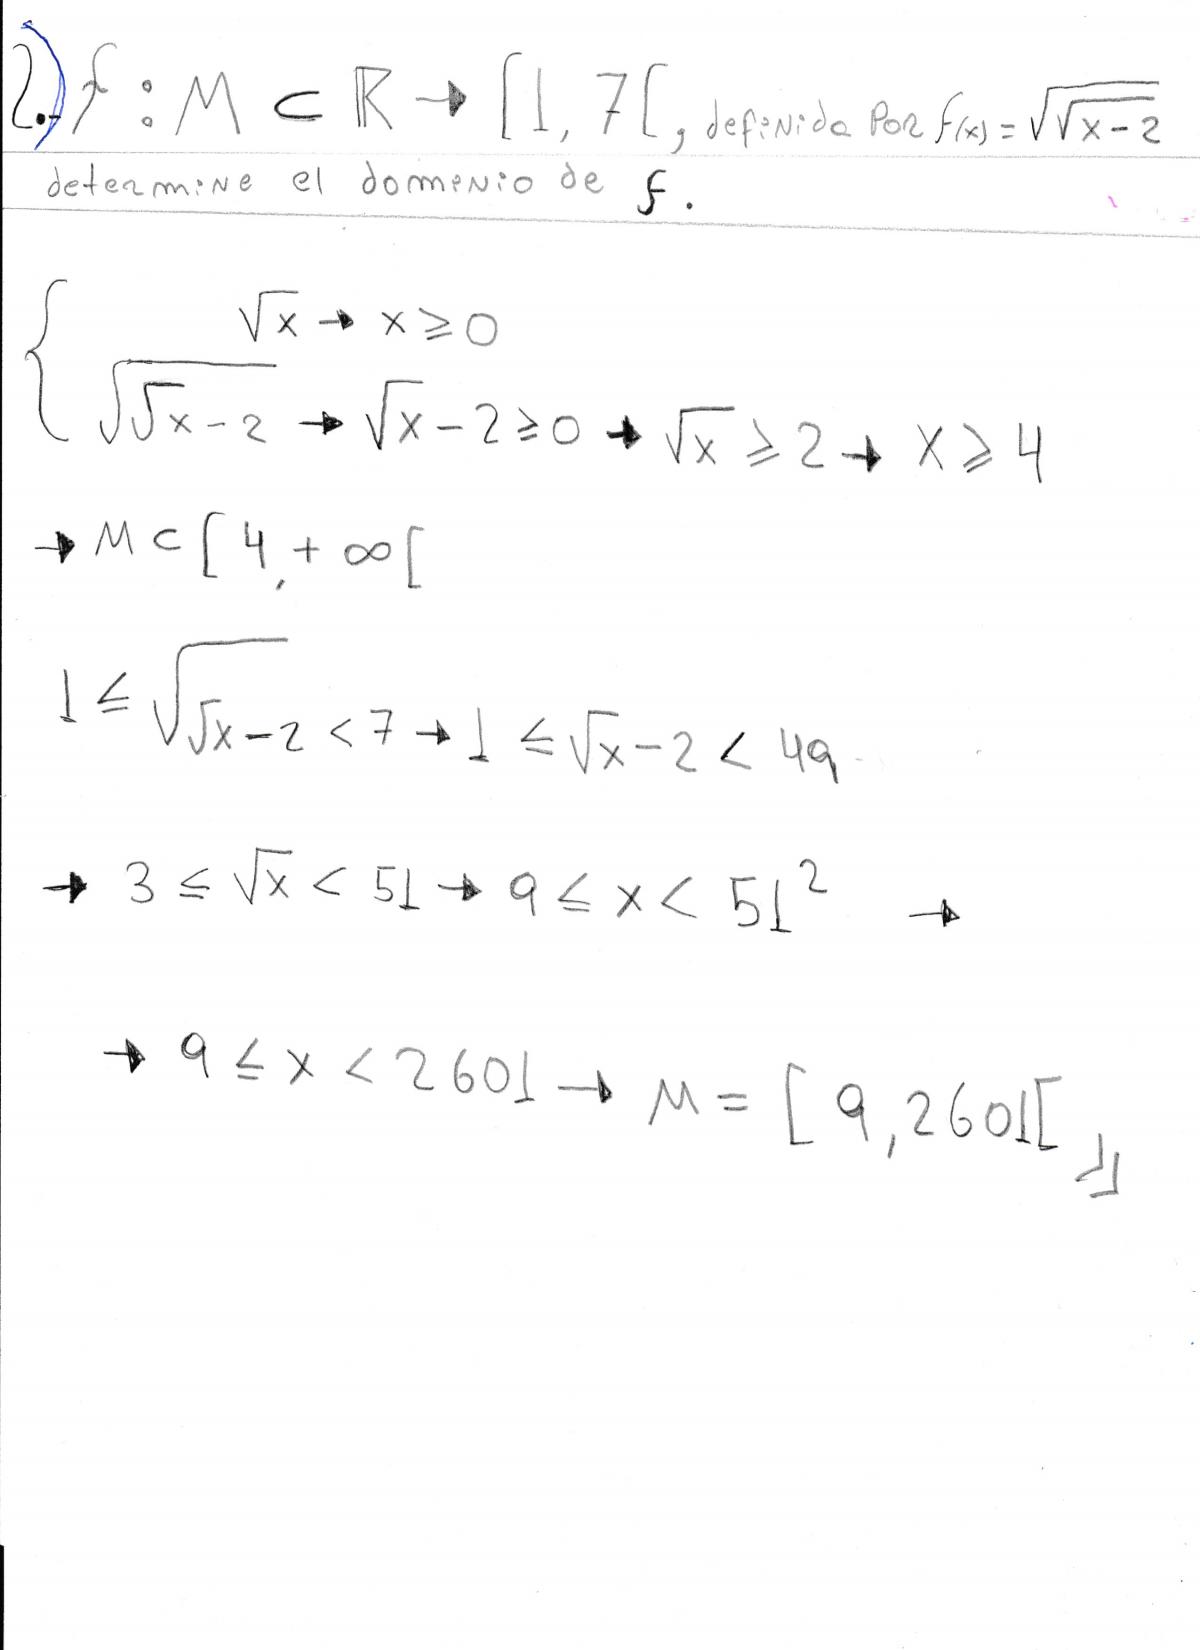 2.-) f : M ⊂ ℝ → [1, 7[, definida Por f(x) = √(√x - 2)
determine el domenio de f.
{ √x → x ≥ 0
√(√x - 2) → √x - 2 ≥ 0 → √x ≥ 2 → x ≥ 4
→ M ⊂ [4, + ∞[
1 ≤ √(√x - 2) < 7 → 1 ≤ √x - 2 < 49
→ 3 ≤ √x < 51 → 9 ≤ x < 51² →
→ 9 ≤ x < 2601 → M = [9, 2601[